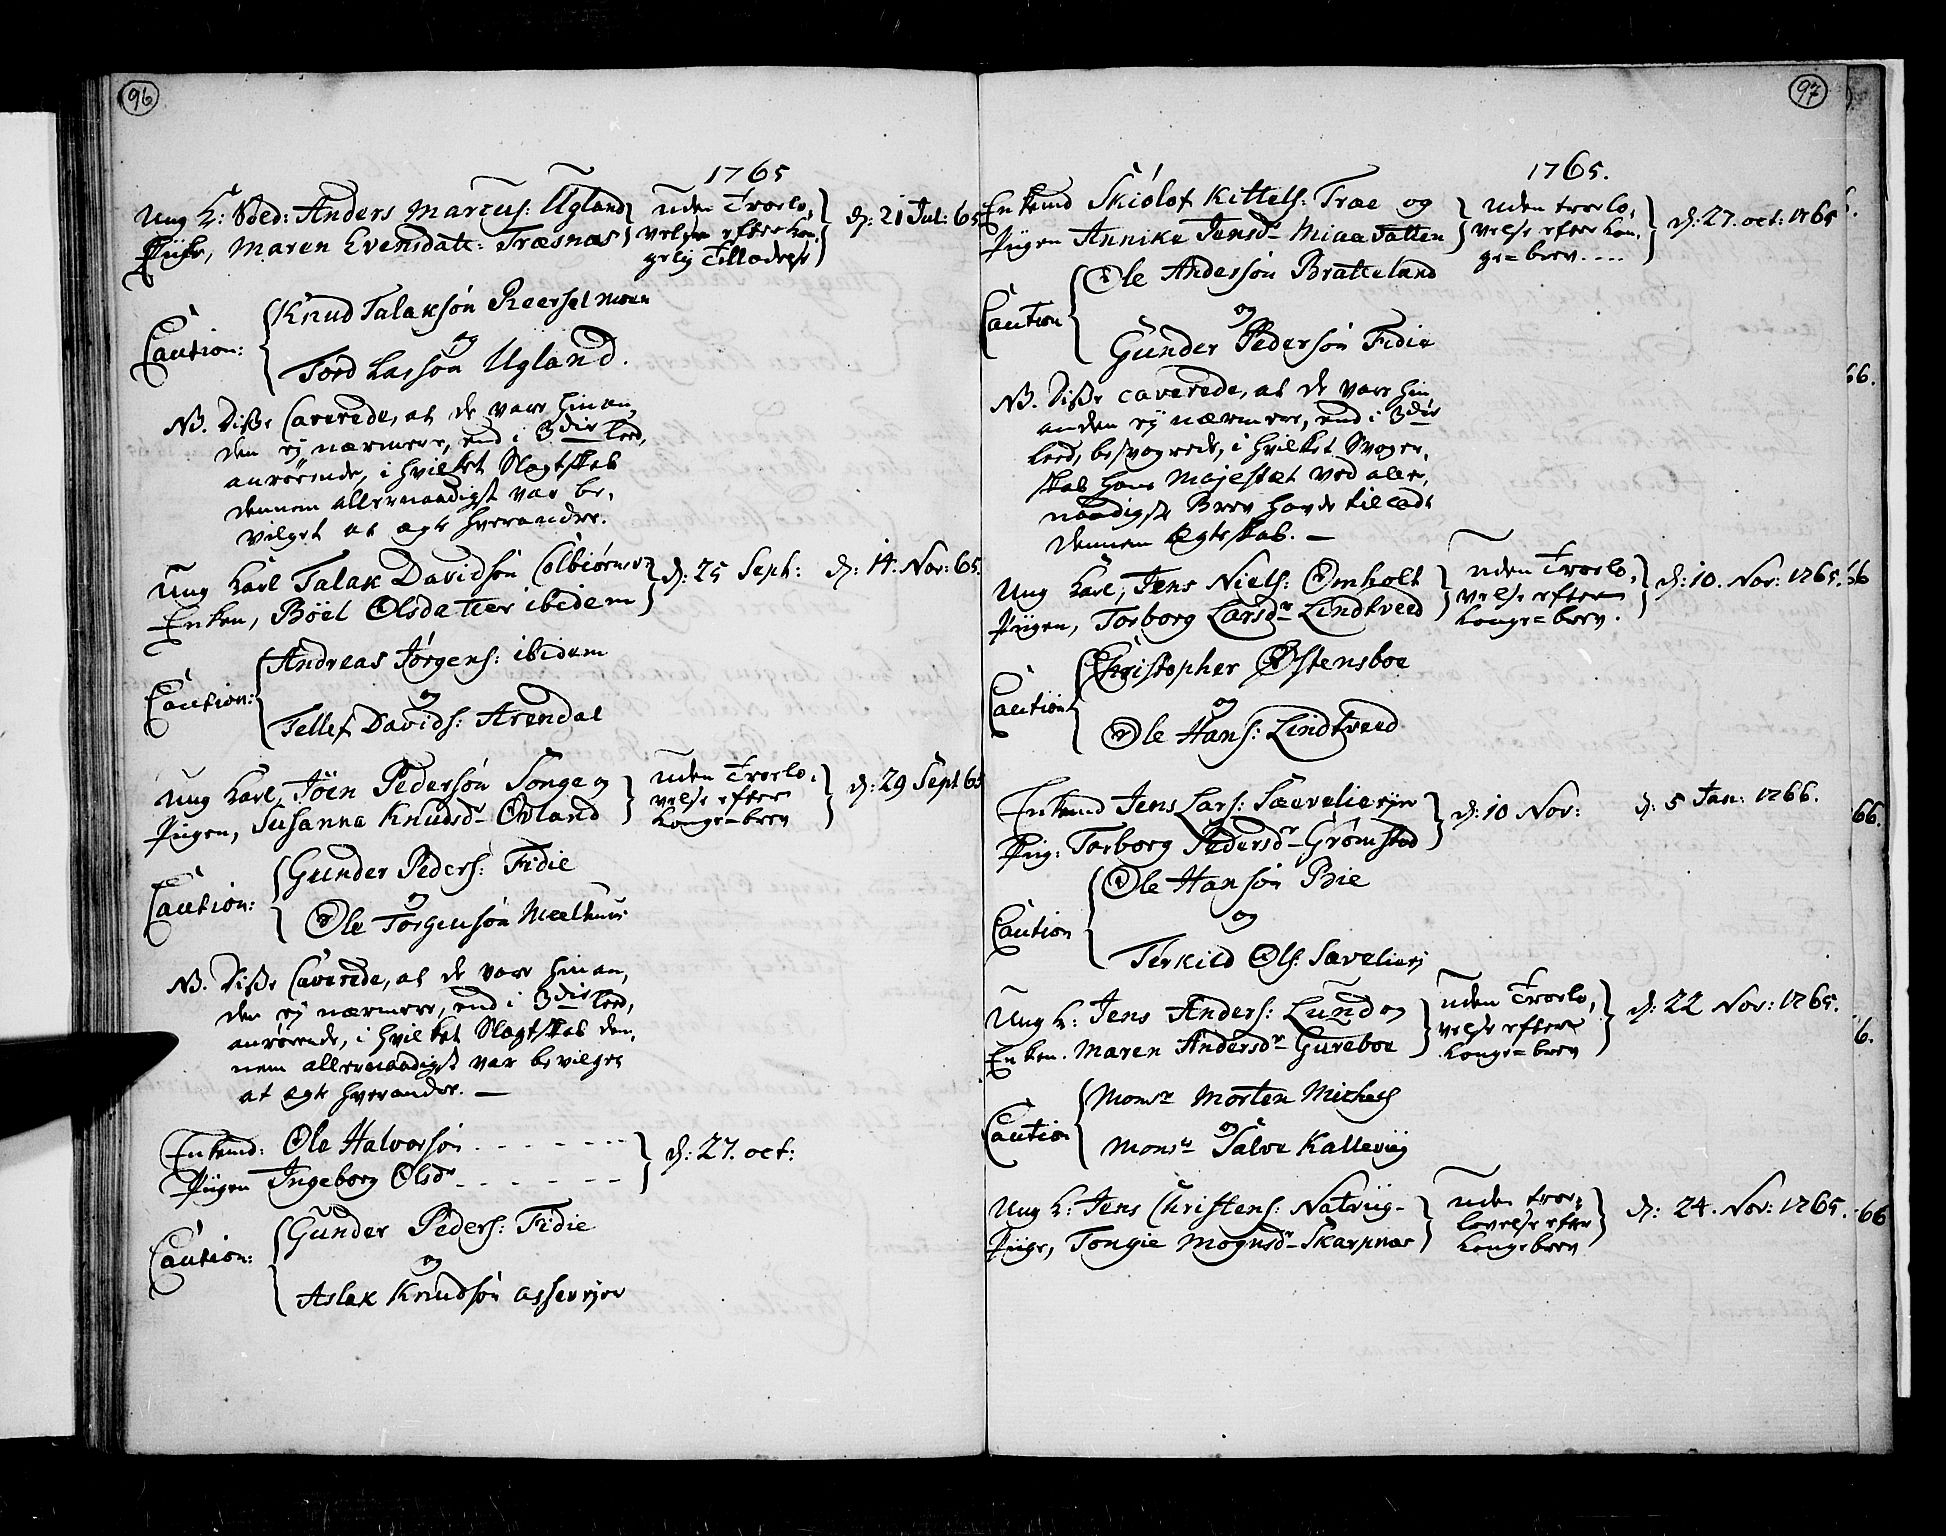 96
1765
Ung K: Sved: Anders Marcus: Ugland
Pige, Maren Evensdatt: Træsnæs
uden Troelo,
velse efter kon,
gelig Tilladelse
d: 21 Jul: 65
Caution:
Knud Talaksøn
og
Tord Lassøn Ugland.
NB. Disse Caverede, at de vare hinan,
den ej nærmere, end i 3die leed,
anrørende, i hvilket Slægtskab
dennem allernaadigst var be,
vilget at ægte hverandre.
Ung Karl Talak Davidsøn Colbiørnsv:
Enken, Böel Olsdatter ibidem
d: 25 Sept: d: 14. Nov: 65.
Caution:
Andreas Jørgens: ibidem
og
Tellef Davids: Arendal
Ung Karl, Jöen Pedersøn Songe og
Pigen, Susanna Knudsdr Øvland
uden Troelo,
velse efter
Konge=brev
d: 29 Sept 65
Caution:
Gunder Peders: Fidie
og
Ole Torgensøn Meelhuus
NB. Disse Caverede, at de vare hinan,
den ej nærmere, end i 3die leed,
anrørende, i hvilket Slægtskab den,
nem allernaadigst var bevilget
at ægte hverandre. —
Enkemd: Ole Halvorsøn . - - - - - - -
Piigen Ingeborg Olsdr - - - - - -
d: 27. oct:
Caution:
Gunder Peders: Fidie
og
Aslak Knudsøn Assevejen
97
1765.
Enkemd Skiölot Kittels: Træ og
Pigen Annike Jensdr Miaa Tatten
uden troelo,
velse efter kon,
ge=brev. ....
d: 27. oct: 1765
Caution
Ole Andersøn Bratteland
og
Gunder Pedersøn Fidie
NB. Disse caverede, at de vare hin,
anden ej nærmere, end i 3die
leed, besvogrede, i hvilket Svoger,
skab Hans Majestæt ved aller,
naadigste Brev havde tilladt
dennem Ægteskab. —
Ung Karl, Jens Niels: Omholt
Piigen, Torborg Larsdr Lindtveed
uden Troelo,
velse efter
Konge=brev.
d: 10. Nov: 1765.
Caution
Christopher Østensboe
og
Ole Hans: Lindtveed
Enkemd Jens Lars: Sævelieejer
Piig: Torborg Pedersdr Grömstad
d: 10 Nov: d: 5 Jan: 1766.
Caution
Ole Hansøn Bie
og
Terkild Ols: Sævelieej
Ung K: Jens Anders: Lund og
Enken. Maren Andersdr Gureboe
uden Troelo,
velse efter
Konge=brev
d: 22 Nov: 1765.
Caution
Monsr Morten Michels
og
Monsr Salve Kallevig
Ung K: Jens Christens: Natviig-
Piige, Tongie Mognsdr Skarpnæs
uden troe,
lovelse efter
Kongebrev
d: 24. Nov: 1765.
66.
66
66.
6.
66